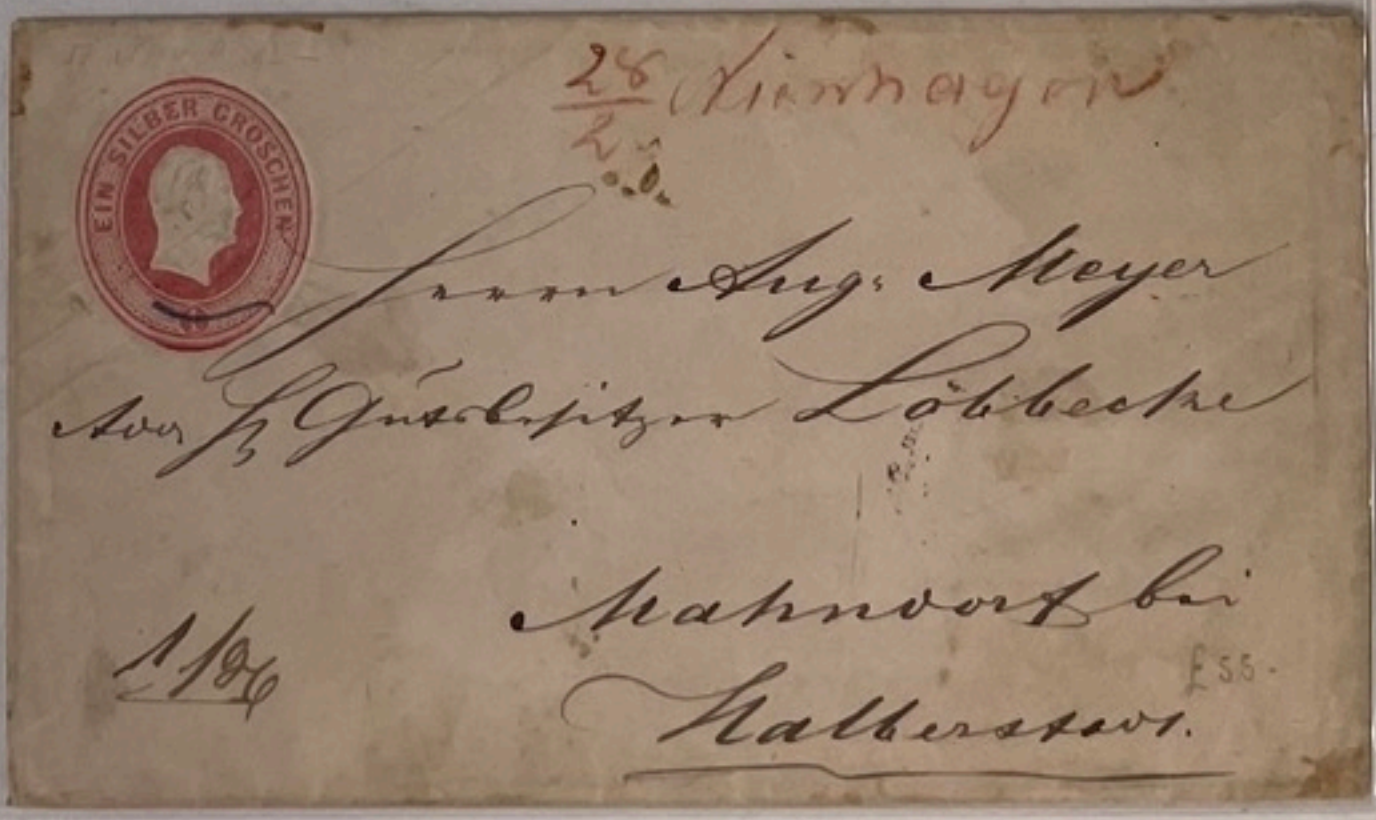 EIN SILBER GROSCHEN
28/2 Nienhagen
Herrn Aug: Meyer
Gutsbesitzer Löbbecke
Mahndorf bei
Halberstadt.
£55-